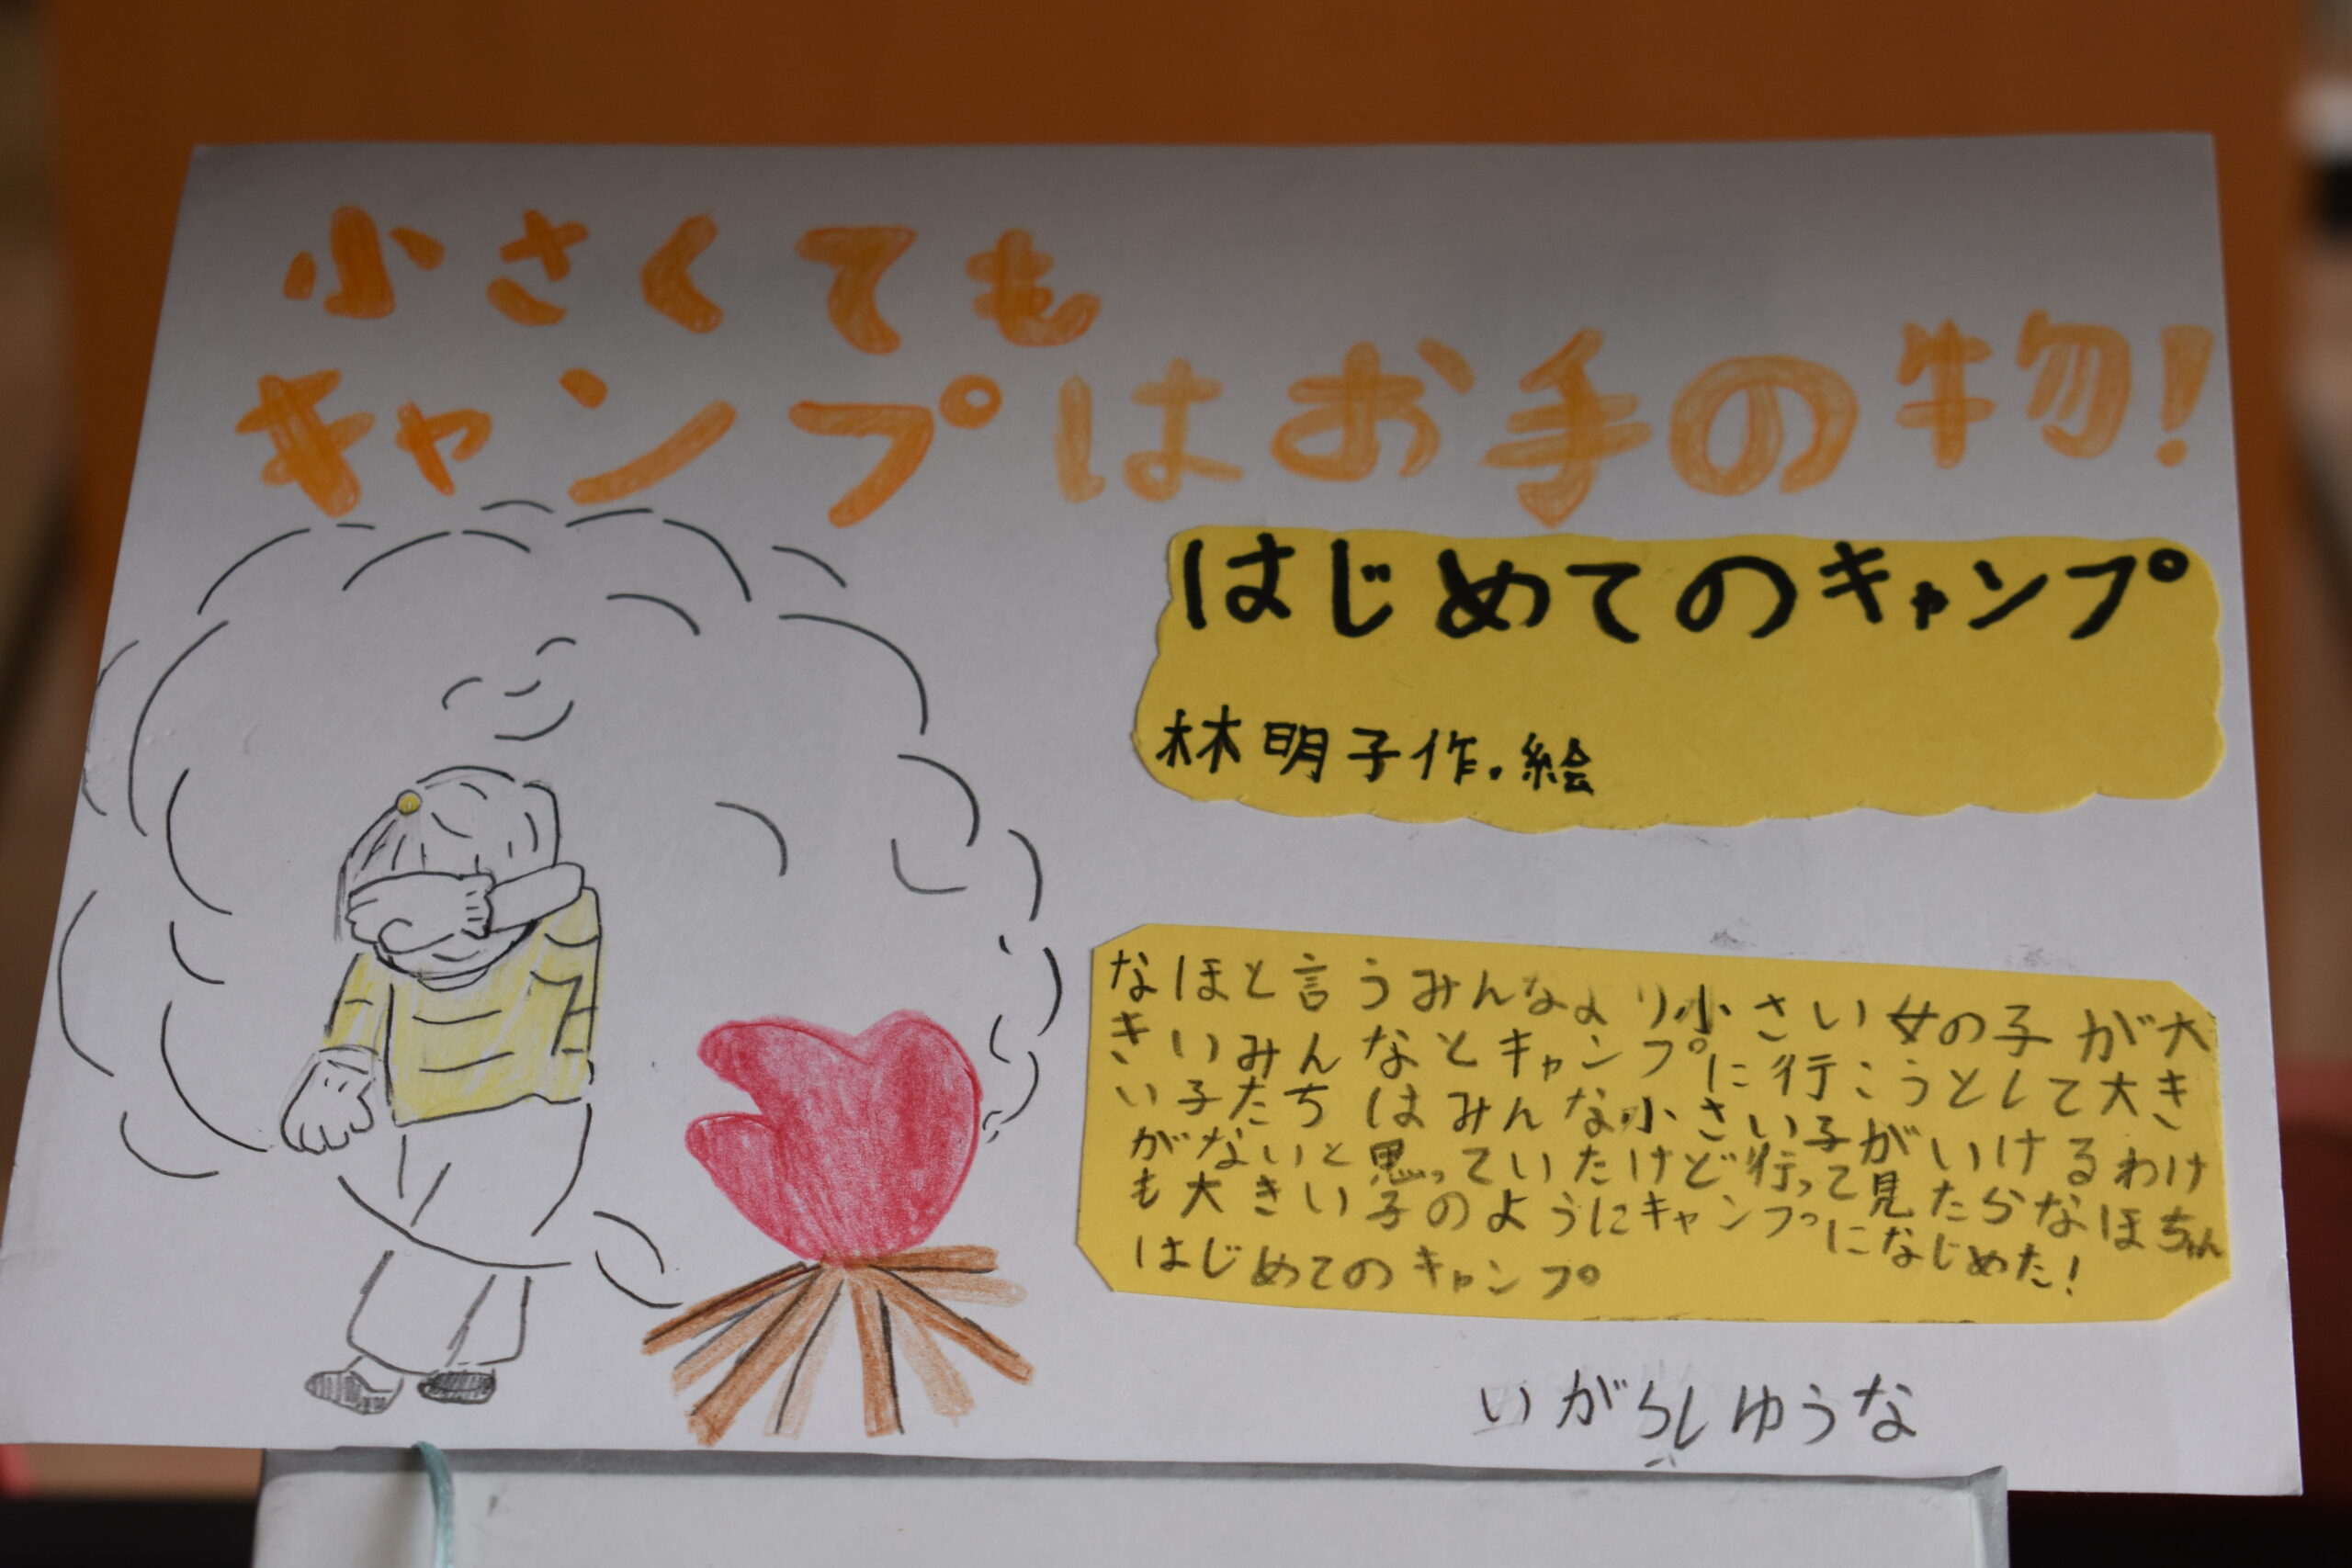 小さくても
キャンプはお手の物!
はじめてのキャンプ
林明子作.絵
なほと言うみんなより小さい女の子が大
きいみんなとキャンプに行こうとして大き
い子たちはみんな小さい子がいけるわけ
がないと思っていたけど行って見たらなほちゃん
も大きい子のようにキャンプになじめた!
はじめてのキャンプ
いがらしゆうな